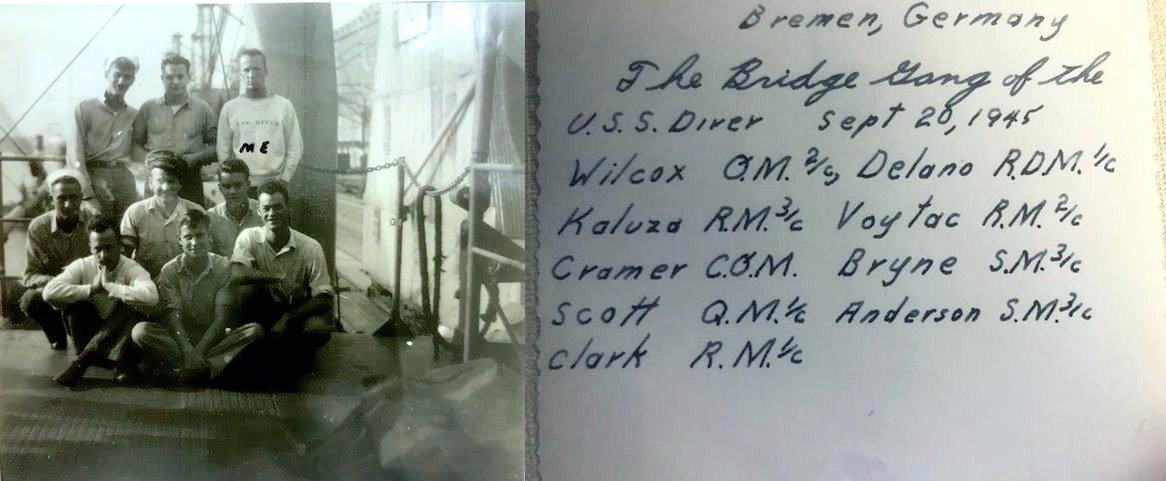 ME
Bremen, Germany
The Bridge Gang of the
U.S.S. Diver Sept 20, 1945
Wilcox Q.M. 2/c, Delano R.D.M. 1/c
Kaluza R.M. 3/c Voytac R.M. 2/c
Cramer C.Q.M. Bryne S.M. 3/c
Scott Q.M. 1/c Anderson S.M. 3/c
Clark R.M. 1/c